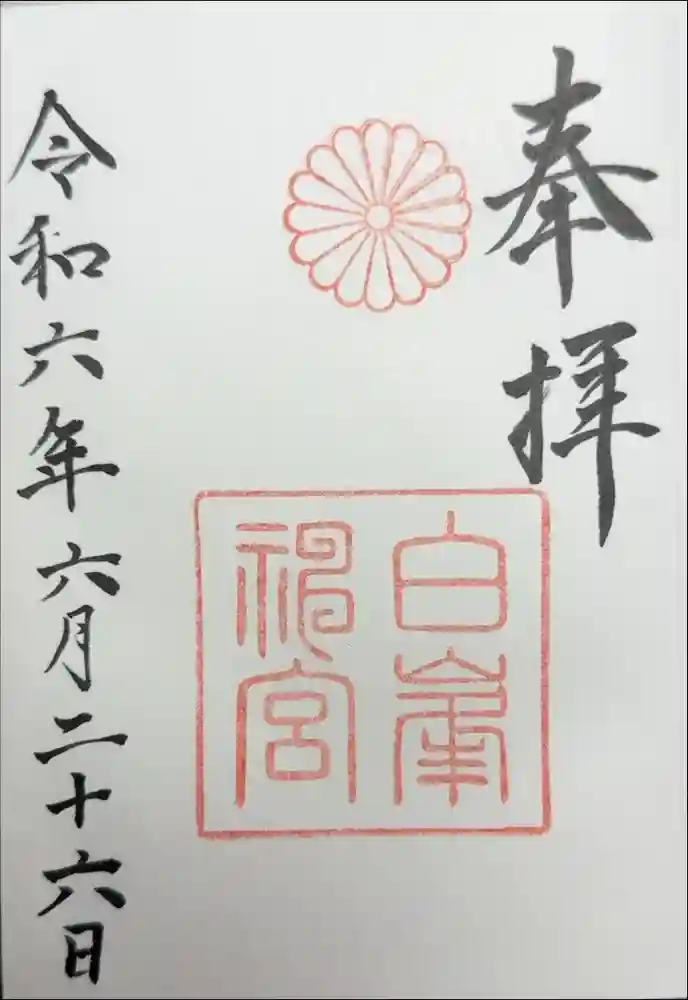 奉拝
白峯神宮
令和六年六月二十六日